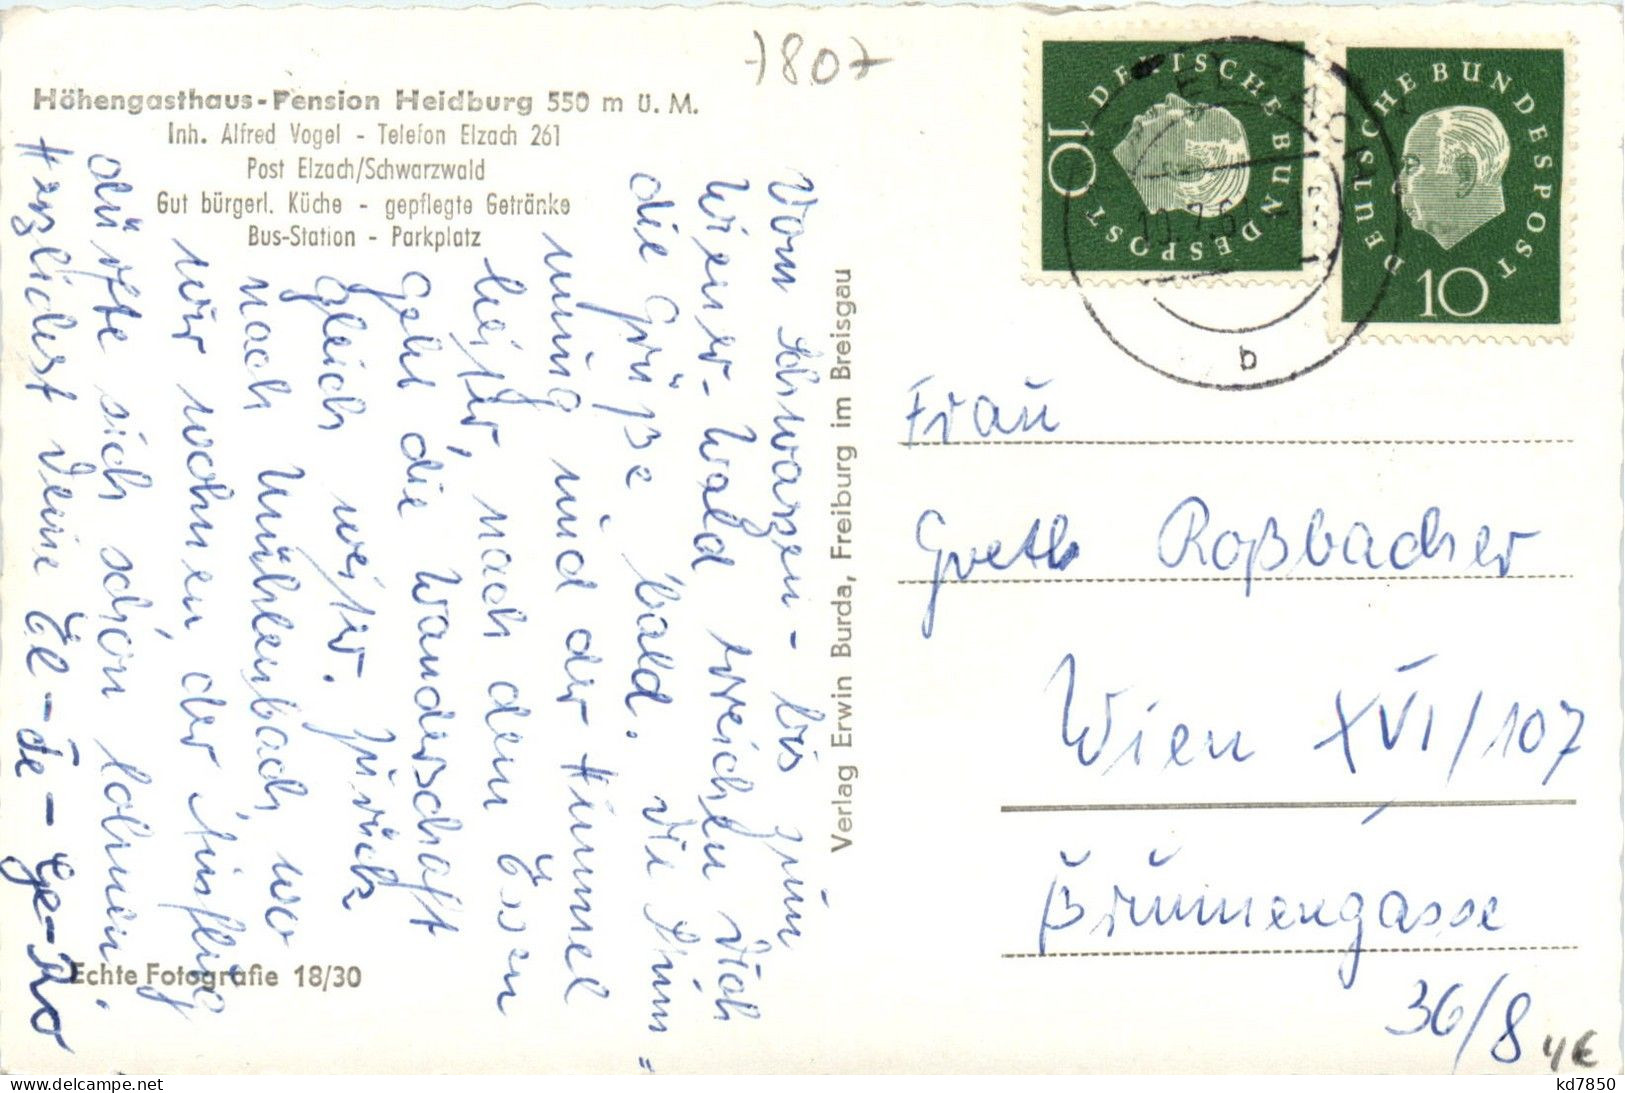 7807
Höhengasthaus-Pension Heidburg 550 m ü. M.
Inh. Alfred Vogel - Telefon Elzach 261
Post Elzach/Schwarzwald
Gut bürgerl. Küche - gepflegte Getränke
Bus-Station - Parkplatz
Vom Schwarzen- bis zum
Wiener-Wald erreichen Dich
die Grüße bald. Die Stim=
mung und der Himmel
heiter, nach dem Essen
geht die Wanderschaft
gleich weiter. Zurück
nach Mühlenbach, wo
wir wohnen, der Ausflug
dürfte sich schon lohnen.
Herzlichst Deine El-Fe-Ge-Ro
Echte Fotografie 18/30
Verlag Erwin Burda, Freiburg im Breisgau
DEUTSCHE BUNDESPOST
10
DEUTSCHE BUNDESPOST
10
ELZACH
b
Frau
Greth Roßbacher
Wien XVI/107
Brunnengasse
36/8
4€
kd7850